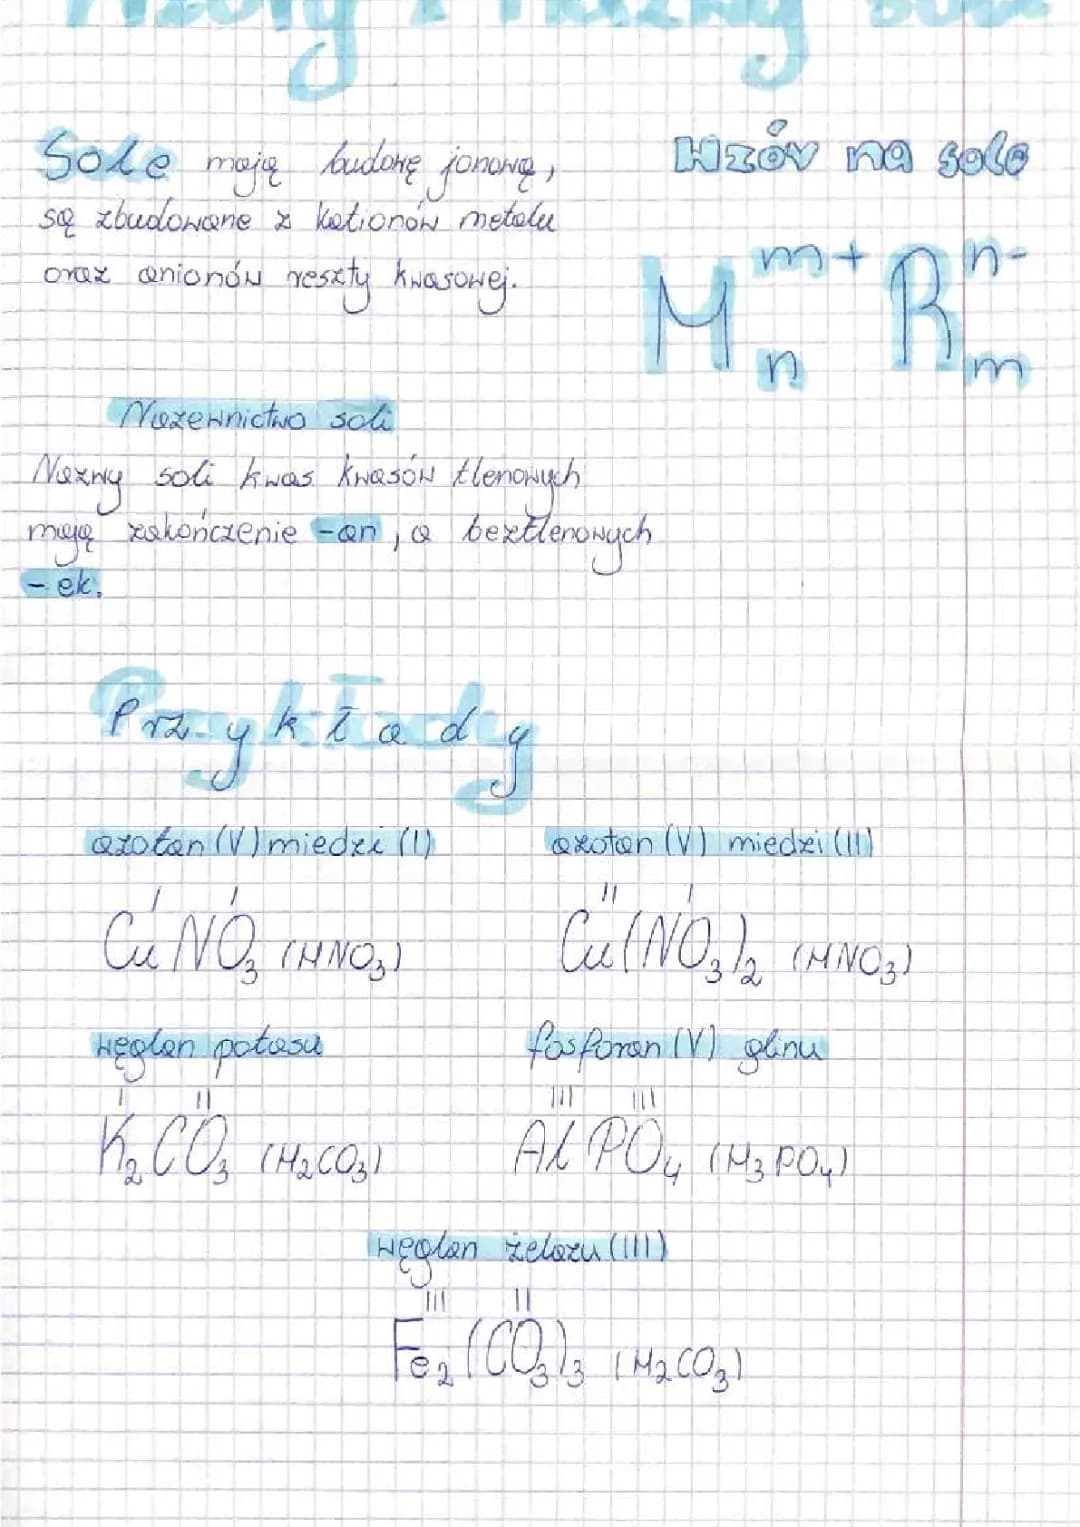 Wzory i nazwy soli
Sole mają budowę jonową,
są zbudowane z kationów metalu
oraz anionów reszty kwasowej.
Wzór na sole
Mₙᵐ⁺ Rₘⁿ⁻
Nazewnictwo soli
Nazwy soli kwas kwasów tlenowych
mają zakończenie -an, a beztlenowych
-ek.
Przykłady
azotan (V) miedzi (I)
I I
CuNO₃ (HNO₃)
azotan (V) miedzi (II)
II I
Cu(NO₃)₂ (HNO₃)
węglan potasu
I II
K₂CO₃ (H₂CO₃)
fosforan (V) glinu
III III
AlPO₄ (H₃PO₄)
węglan żelazu (III)
III II
Fe₂(CO₃)₃ (H₂CO₃)